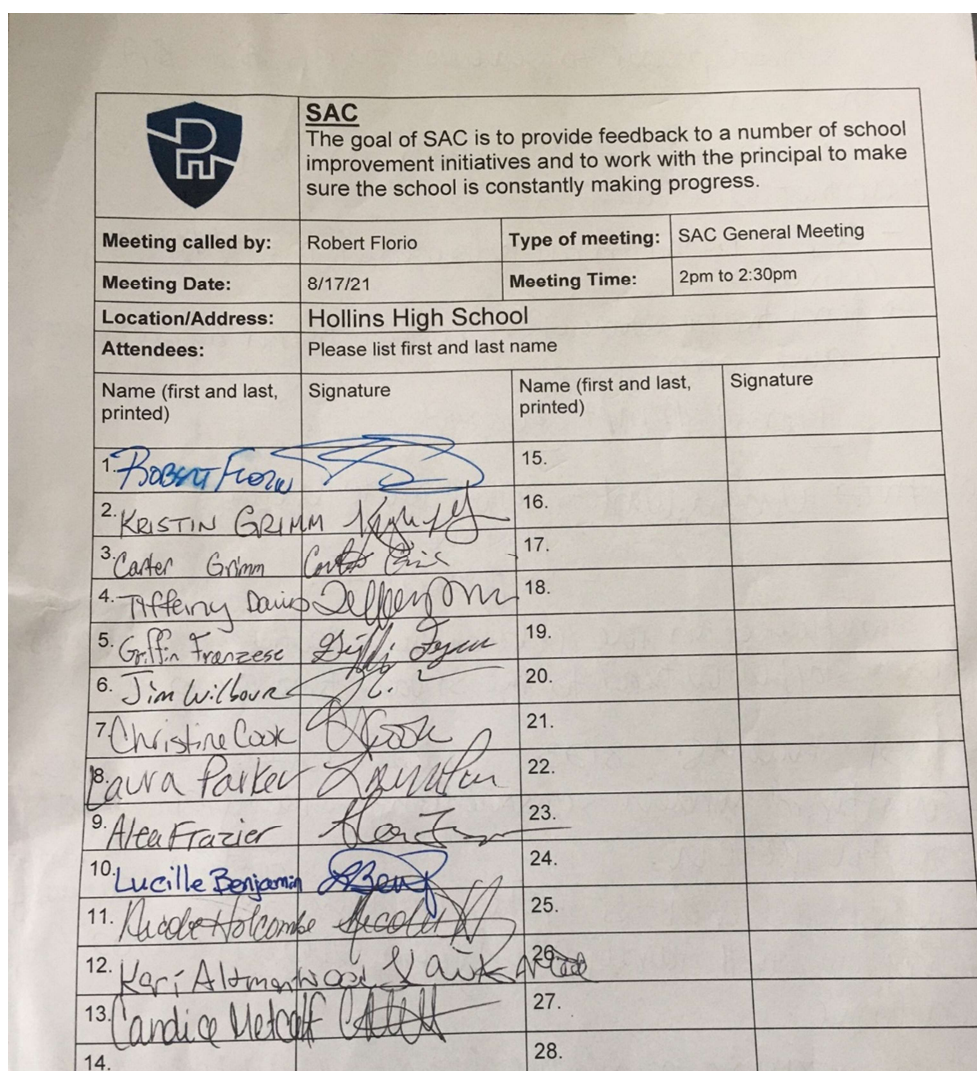 SAC
The goal of SAC is to provide feedback to a number of school
improvement initiatives and to work with the principal to make
sure the school is constantly making progress.
Meeting called by: Robert Florio Type of meeting: SAC General Meeting
Meeting Date: 8/17/21 Meeting Time: 2pm to 2:30pm
Location/Address: Hollins High School
Attendees: Please list first and last name
Name (first and last, Signature Name (first and last, Signature
printed) printed)
1. Robert 15.
2. KRISTIN GRIMM 16.
3. Carter Grimm 17.
4. Tiffeiny Davis 18.
5. Griffin Franzese 19.
6. Jim Wilbour 20.
7. Christine Cook CCook 21.
8. Laura Parker 22.
9. Alea Frazier 23.
10. Lucille Benjamin 24.
11. Nicole Holcombe 25.
12. Kari Altmanwood 26.
13. Candice Metcalf 27.
14. 28.